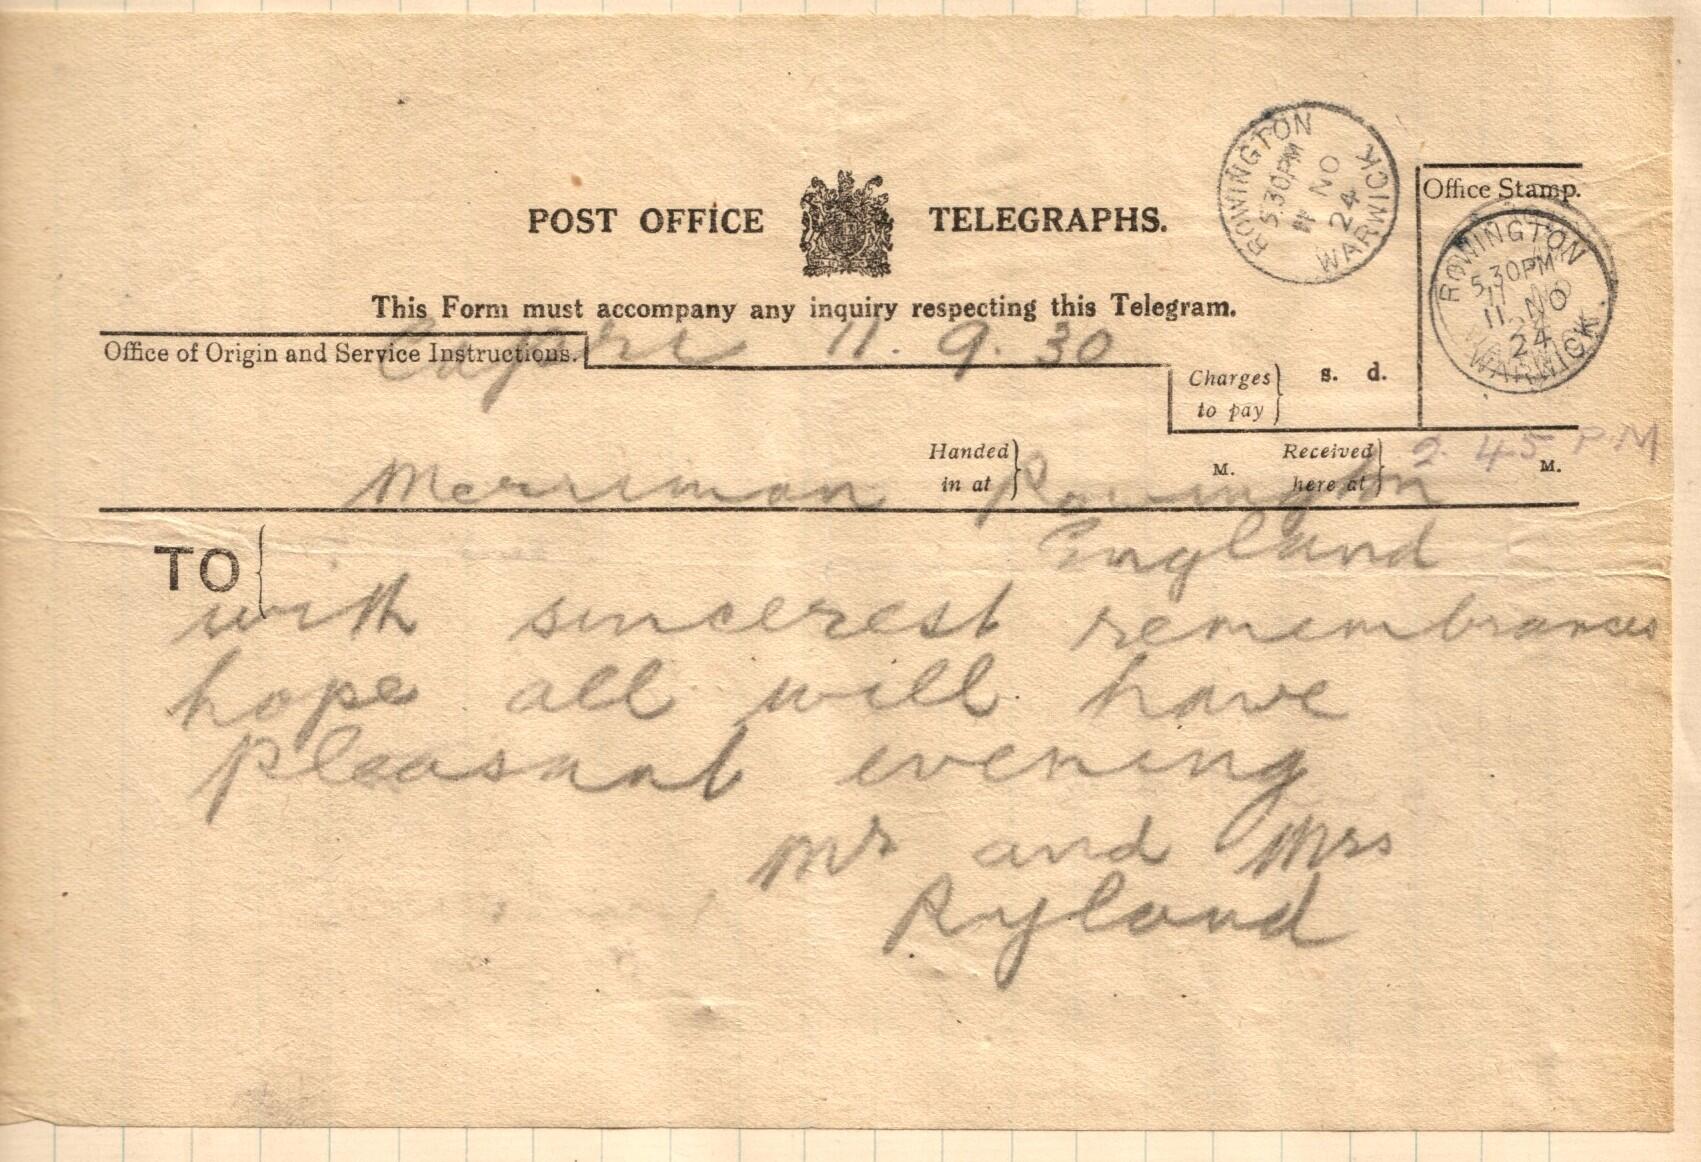 POST OFFICE TELEGRAPHS.
This Form must accompany any inquiry respecting this Telegram.
ROWINGTON
5.30PM
11 NO
24
WARWICK
Office Stamp.
ROWINGTON
5.30PM
11 NO
24
WARWICK
Office of Origin and Service Instructions.
Capri 11. 9.30
Charges to pay } s. d.
Handed in at } M. Received here at } 2.45 P.M M.
Merriman Rowington
England
TO {
with sincerest remembrances
hope all will have
pleasant evening
Mr and Mrs
Ryland